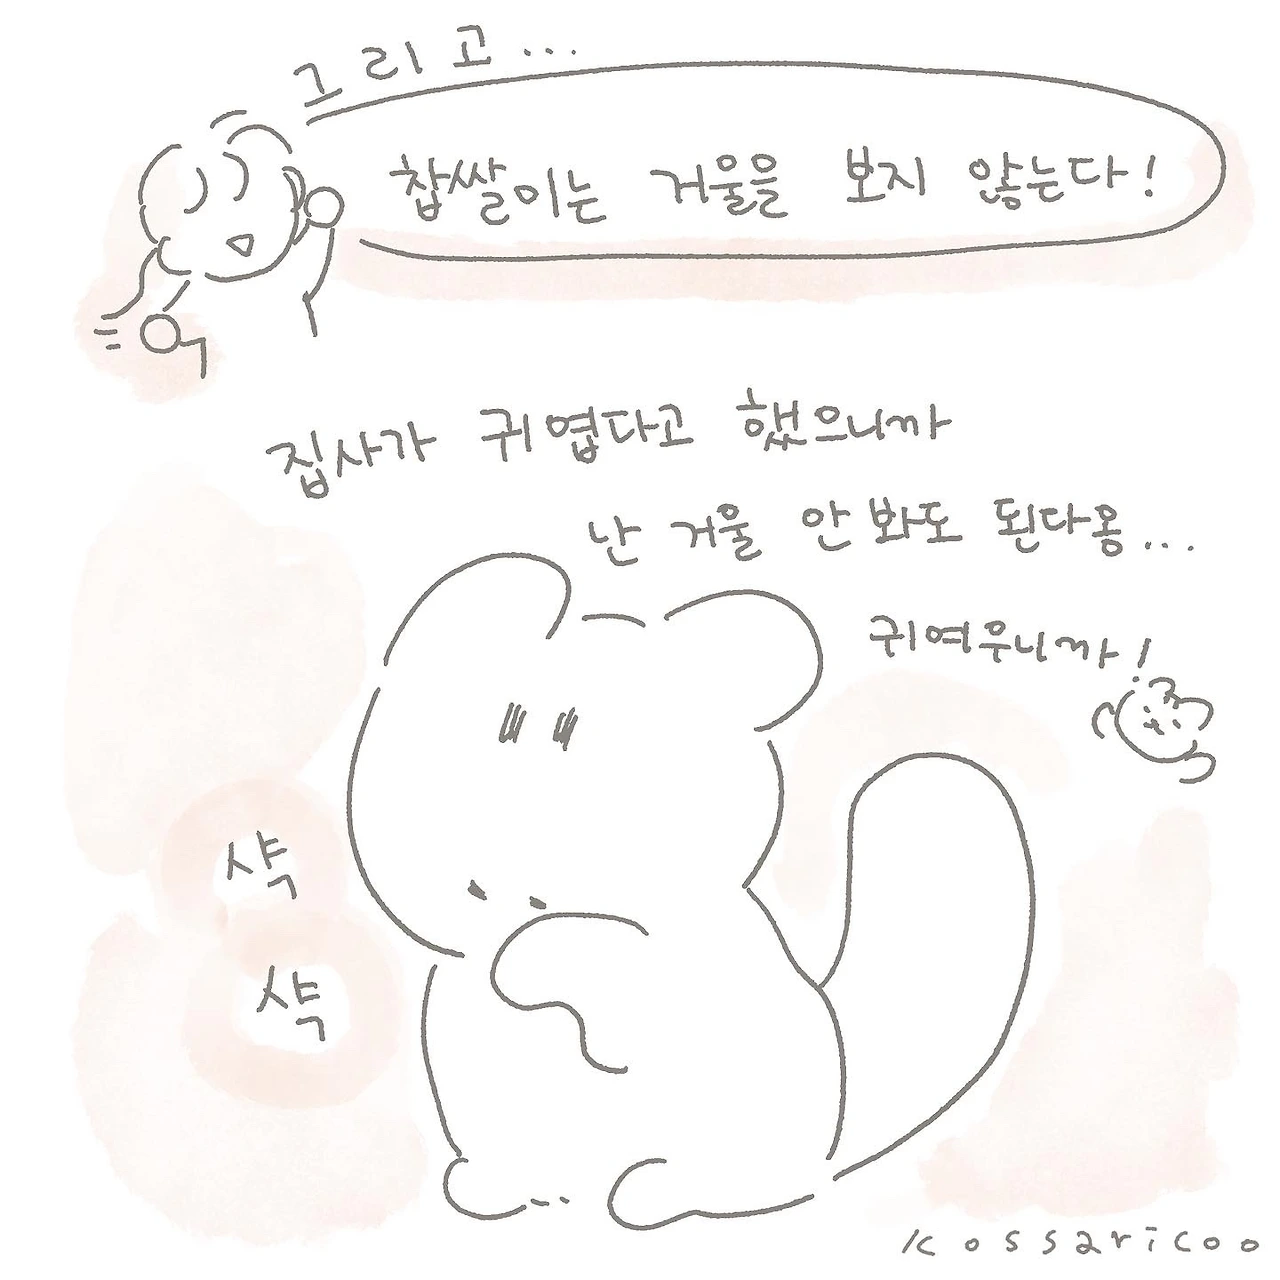 그리고...
찹쌀이는 거울을 보지 않는다!
집사가 귀엽다고 했으니까
난 거울 안 봐도 된다옹...
귀여우니까!
샥
샥
kossaricoo